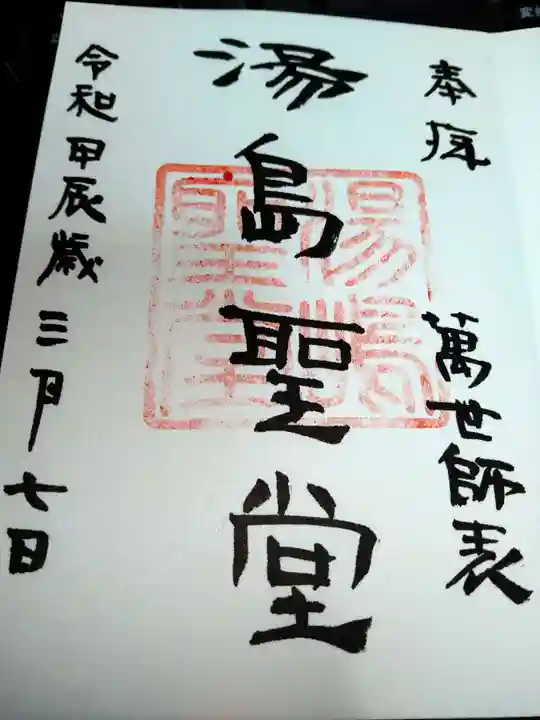 奉拝
萬世師表
湯島聖堂
湯島聖堂
令和甲辰歳三月七日